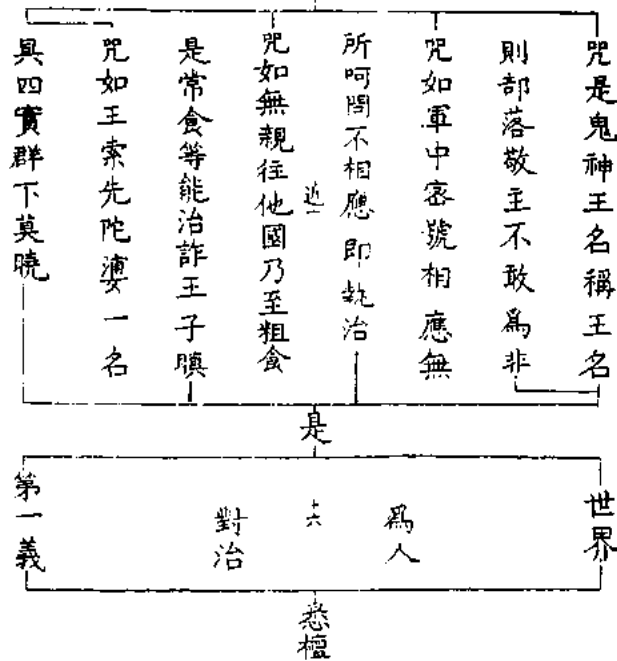 咒是鬼神王名稱王名
則部落敬主不敢為非
咒如軍中密號相應無
所呵問不相應即執治
近一
咒如無親往他國乃至粗食
是常食等能治詐王子瞋
咒如王索先陀婆一名
具四實群下莫曉
是
世界
為人
十六
對治
第一義
悉檀